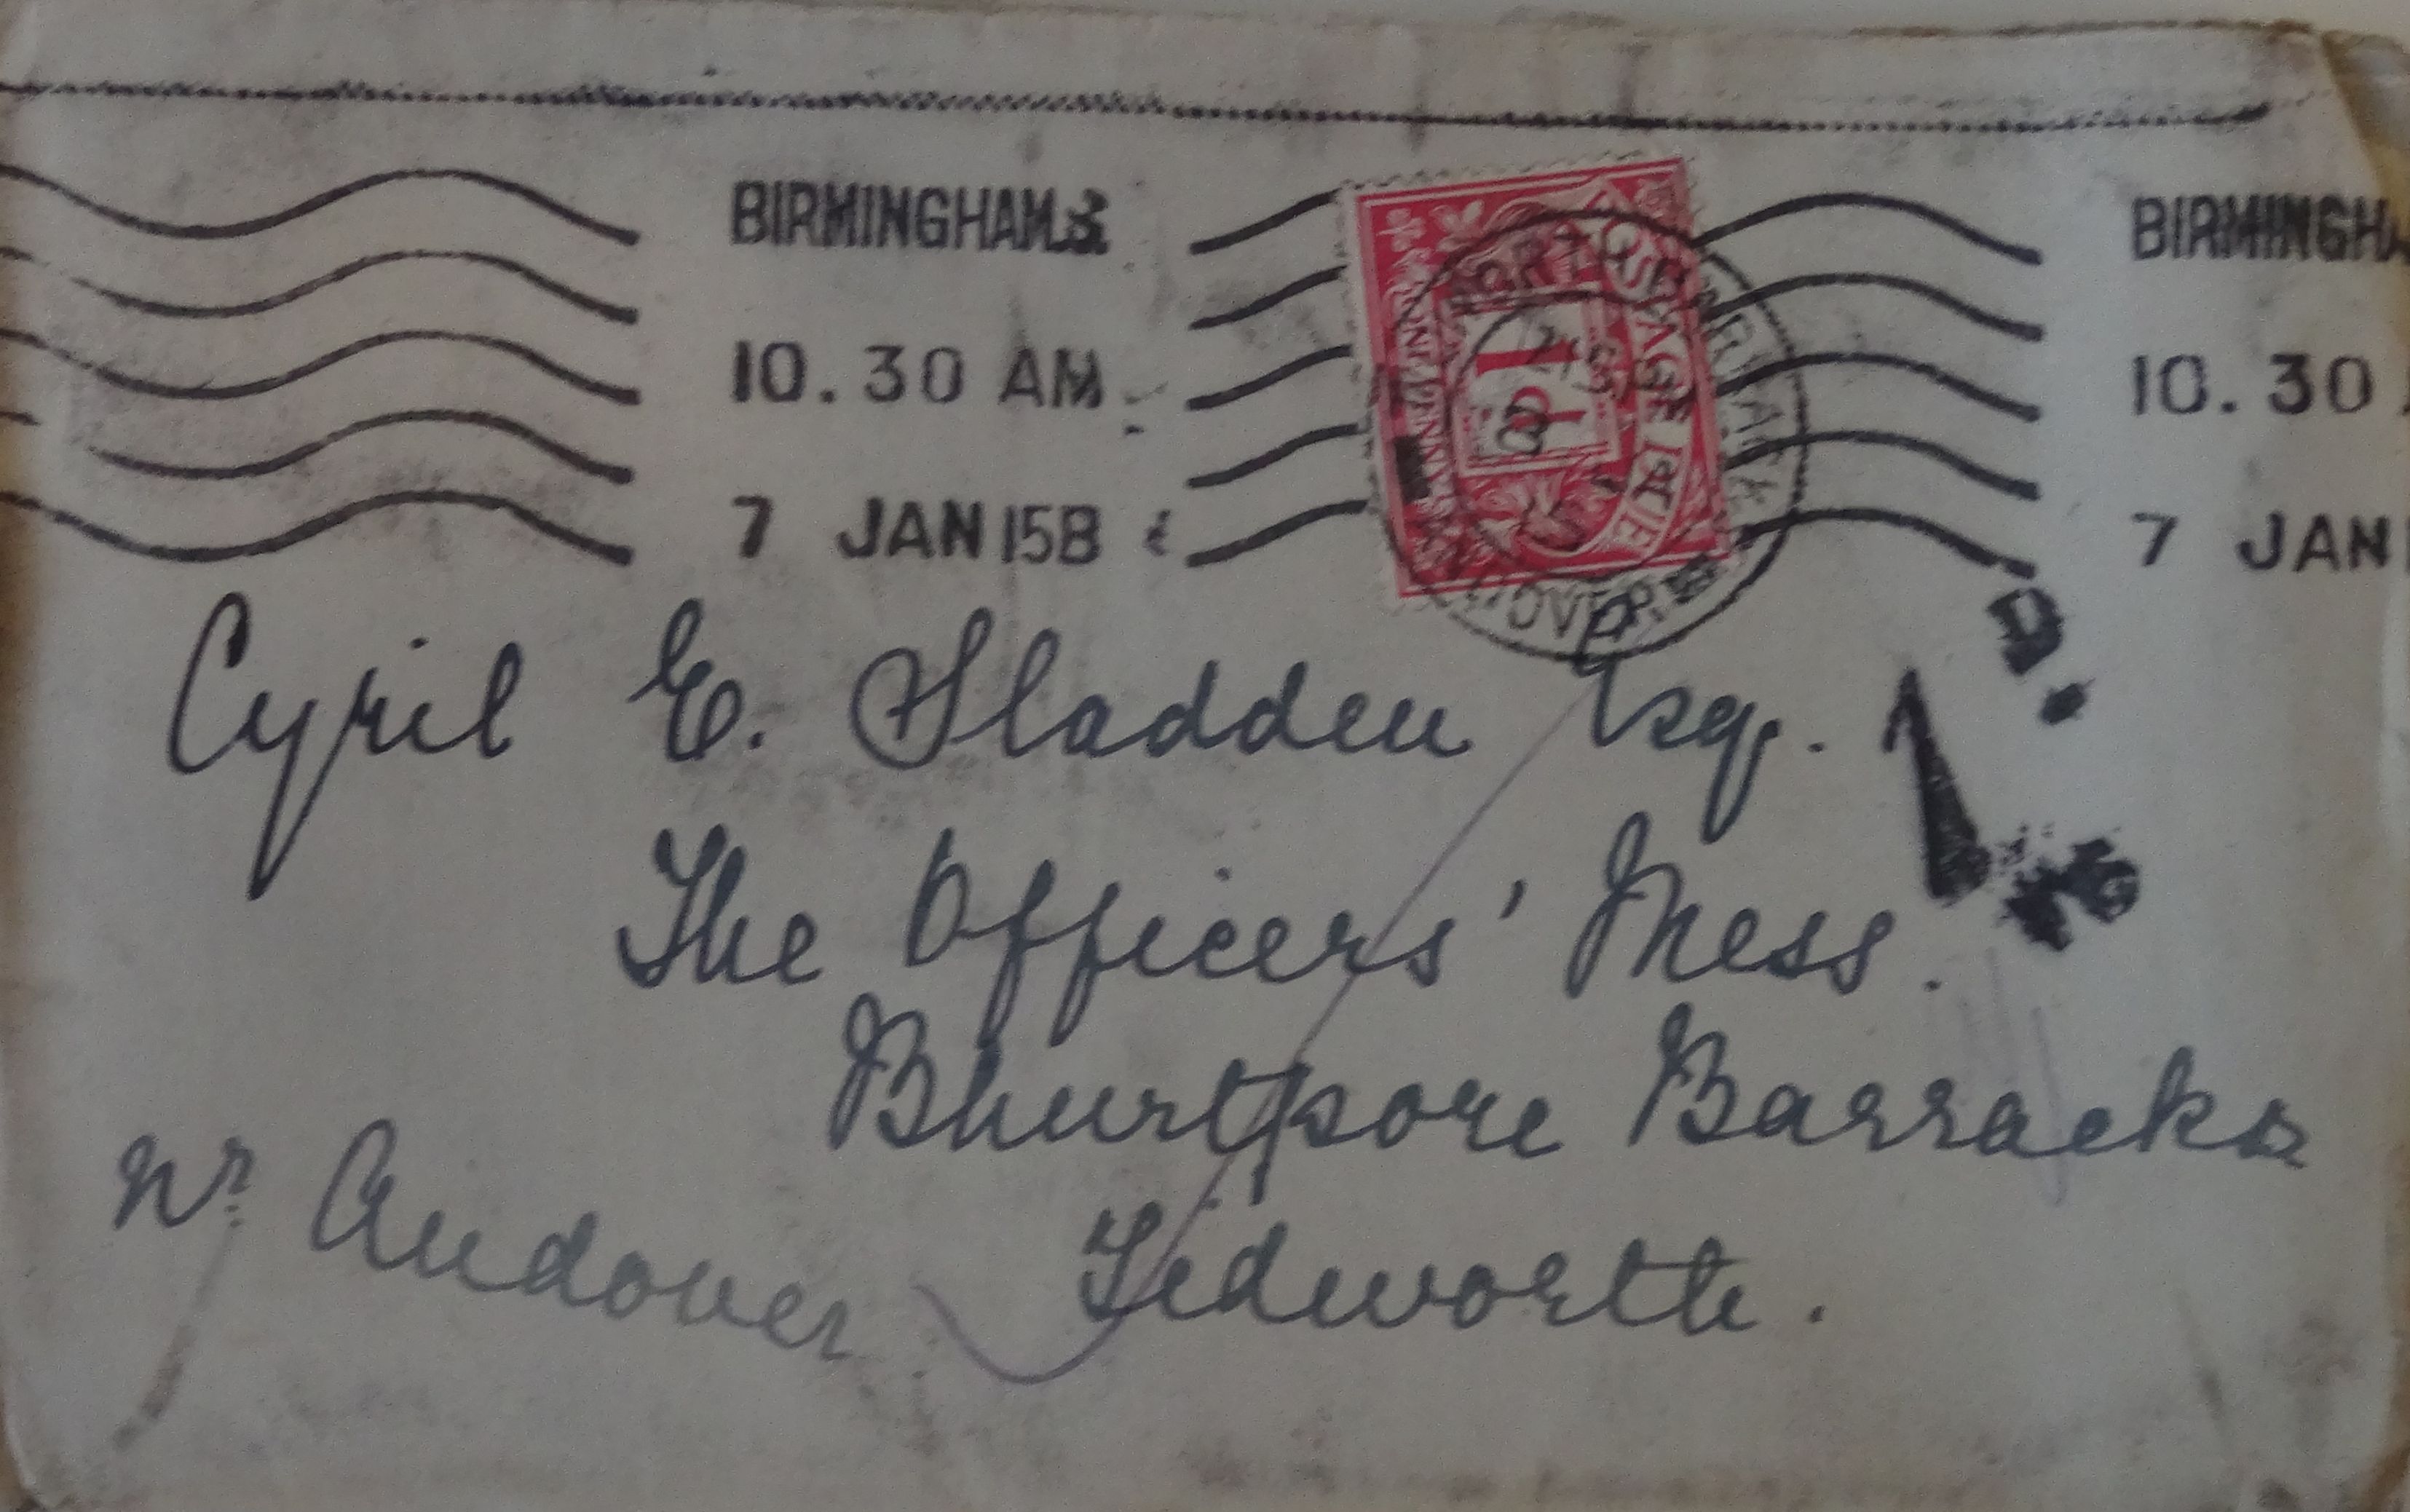 BIRMINGHAM.3 BIRMINGHA
10.30 AM 10.30
7 JAN 15B 7 JAN
POSTAGE DUE
1D
ONE PENNY
Cyril E. Sladden Esq.
D.
1
The Officers' Mess.
Bhurtpore Barracks
Nr Andover Tedworth.